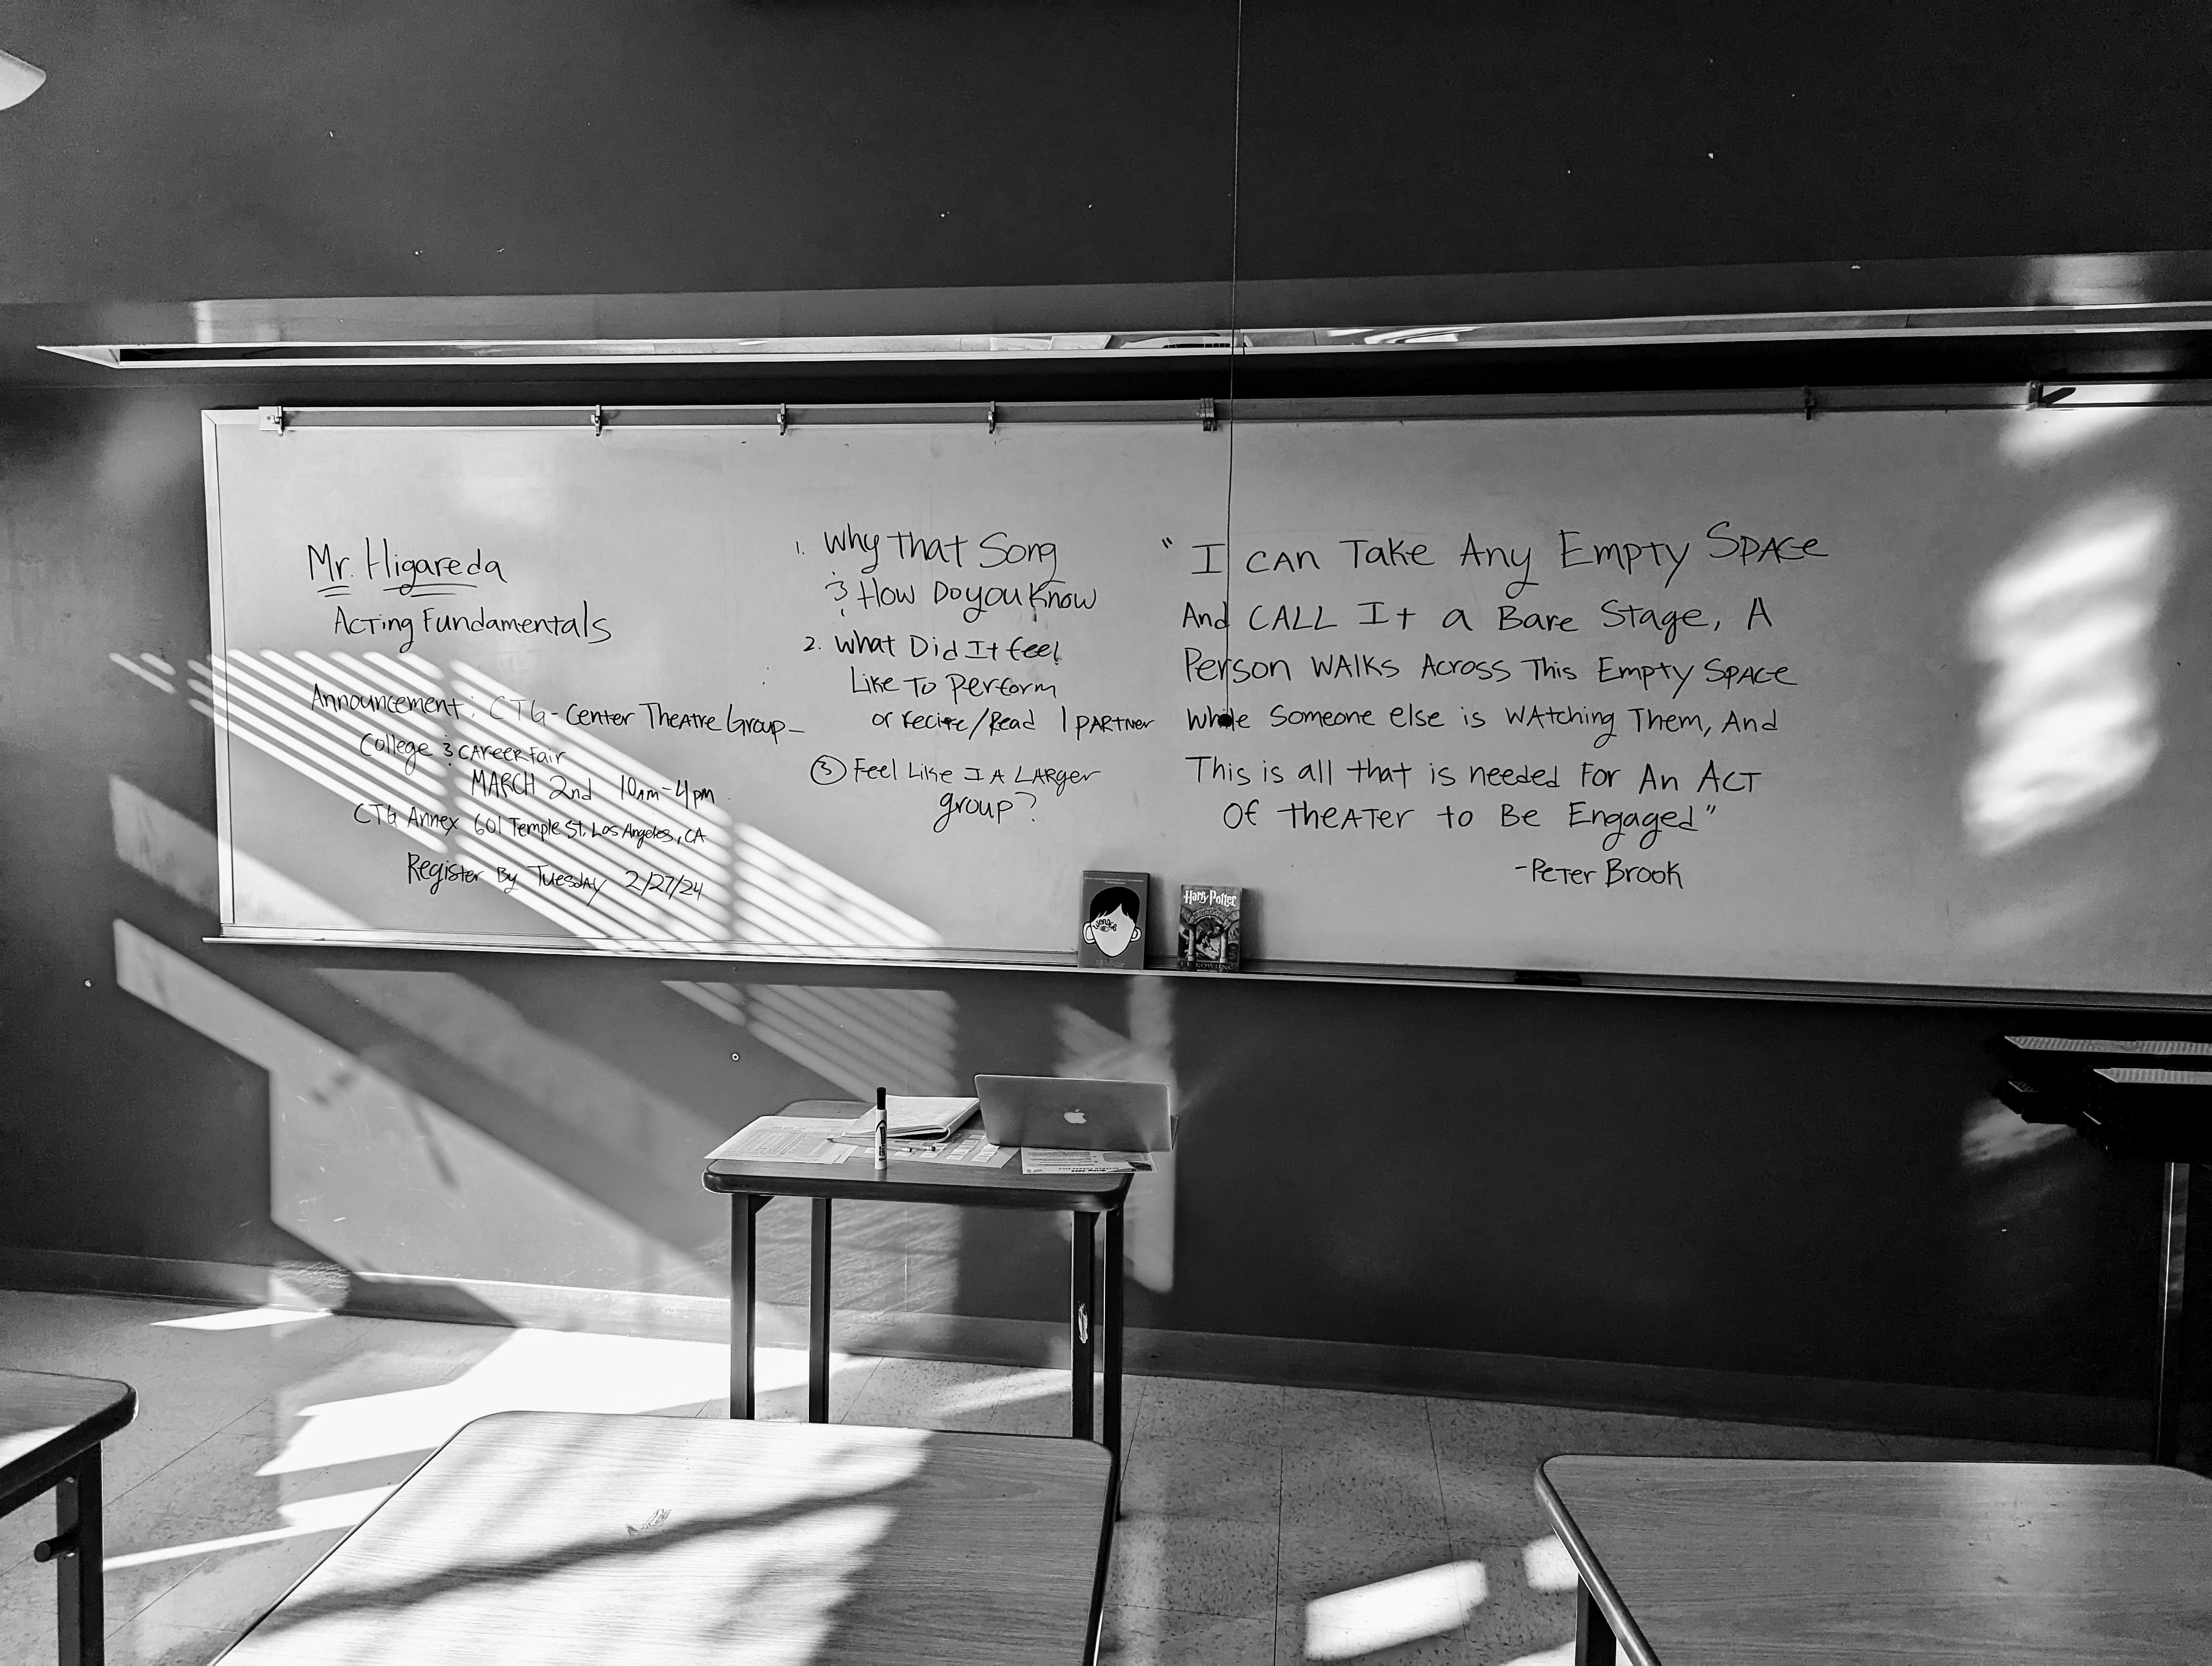 Mr. Higareda
Acting Fundamentals
Announcement: CTG - Center Theatre Group -
College & Career Fair
MARCH 2nd 10am-4pm
CTG Annex 601 Temple St. Los Angeles, CA
Register By Tuesday 2/27/24
1. Why That Song
& How Do you Know
2. What Did It feel
Like To Perform
or recite/Read 1 PARTNER
③ Feel Like I A LARGER
group?
"I CAN Take Any Empty Space
And CALL It a Bare Stage, A
Person WALKS Across This Empty Space
While Someone else is WAtching Them, And
This is all that is needed For An ACT
Of theATer to Be Engaged"
-Peter Brook
Wonder
Harry Potter
J.K. ROWLING